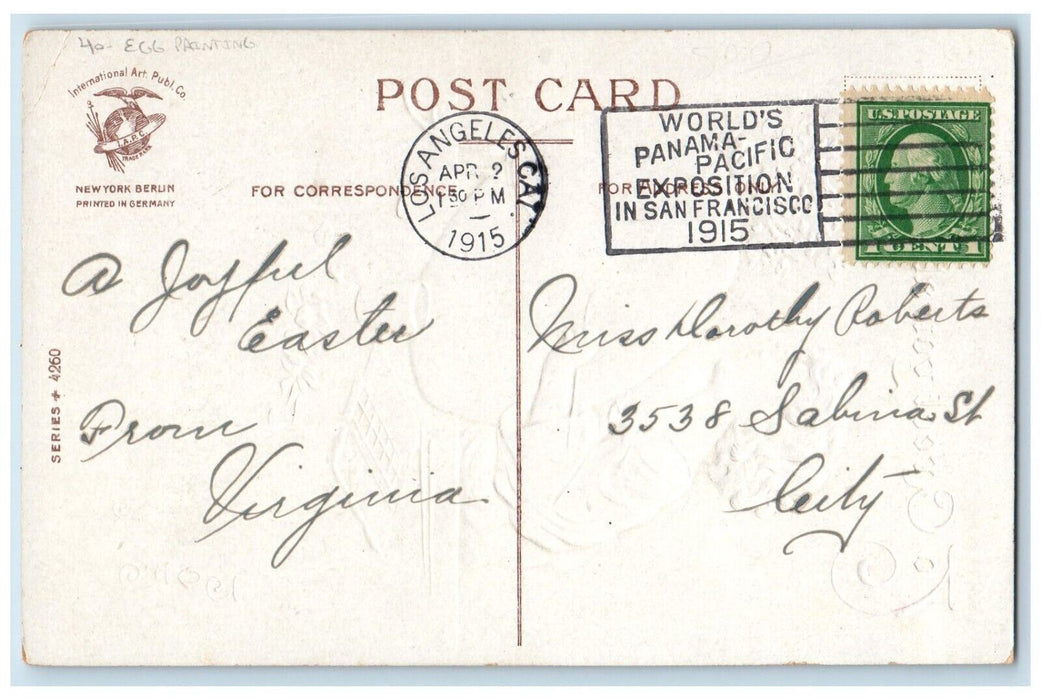 40- EGG PAINTING
International Art. Publ. Co.
I.A.P.C.
TRADE MARK
NEW YORK BERLIN
PRINTED IN GERMANY
POST CARD
FOR CORRESPONDENCE
FOR ADDRESS ONLY
LOS ANGELES, CAL.
APR 2
1 30 PM
1915
WORLD'S
PANAMA-
PACIFIC
EXPOSITION
IN SAN FRANCISCO
1915
U.S. POSTAGE
1 CENT 1
A Joyful
Easter
From
Virginia
SERIES + 4260
Miss Dorothy Roberts
3538 Sabina St
City